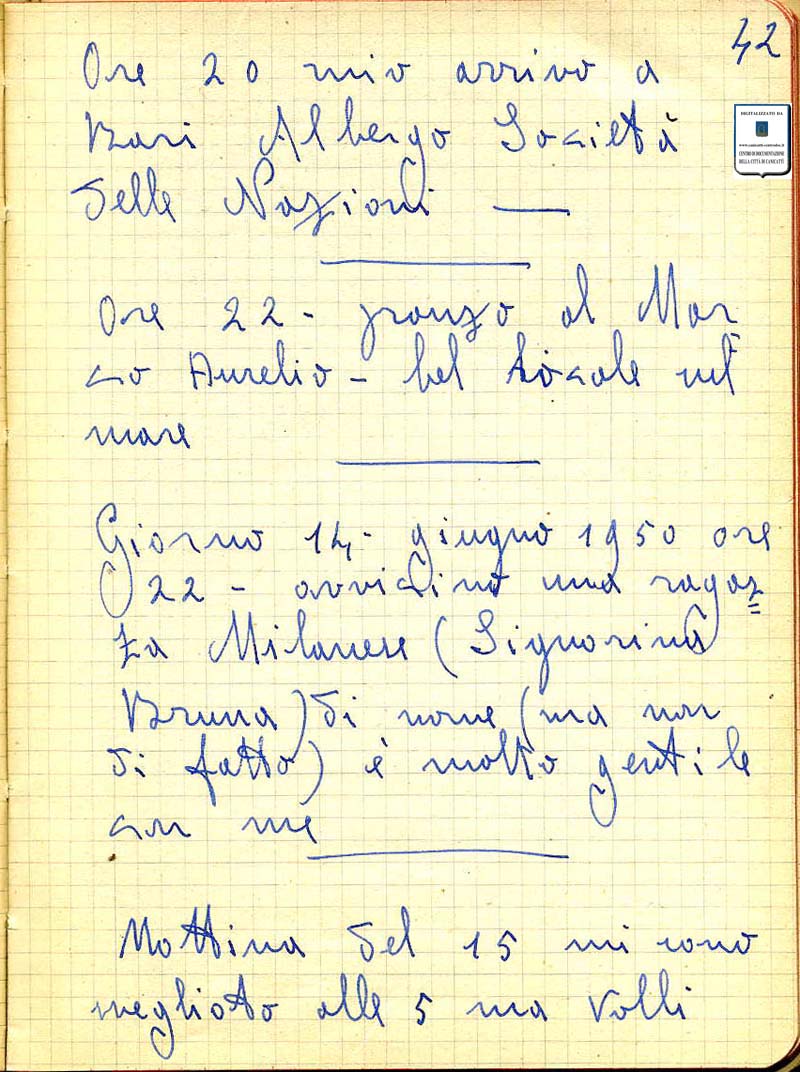 42
Ore 20 mio arrivo a
Bari Albergo Società
delle Nazioni —
Ore 22 - pranzo al Mar
co Aurelio - bel locale nel
mare
Giorno 14 - giugno 1950 ore
22 - avvicino una ragaz=
za Milanese (Signorina
Bruna) di nome (ma non
di fatto) è molto gentile
con me
Mattina del 15 mi sono
svegliato alle 5 ma volli
DIGITALIZZATO DA
CENTRO DI DOCUMENTAZIONE
DELLA CITTÀ DI CANICATTÌ